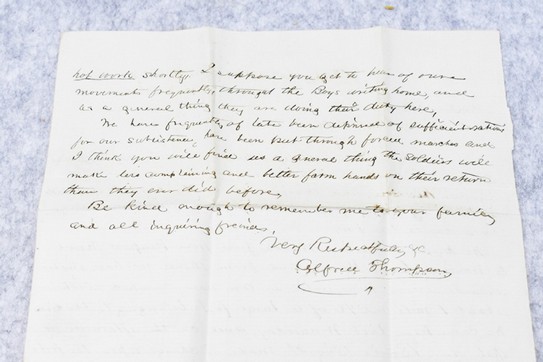 hot work shortly, I suppose you get to hear of our
movements frequently, through the Boys writing home, and
as a general thing they are doing their duty here,
We have frequently of late been deprived of sufficient rations
for our subsistence, have been put through forced marches and
I think you will find as a general thing the soldiers will
make less complaining and better farm hands on their return
than they ever did before,
Be kind enough to remember me to your family
and all inquiring friends,
Very Respectfully &c
Alfred Thompson